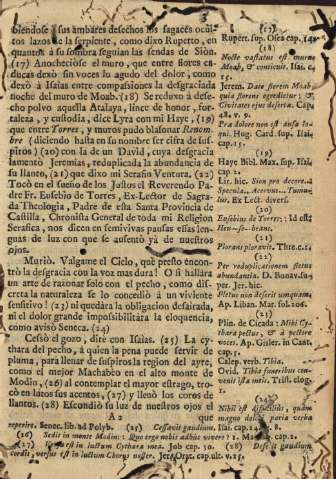 biendose sus ambares desechos los sagaces ocul-
tos lazos de la serpiente, como dixo Ruperto, en
quanto à su sombra seguian las sendas de Siòn.
(17) Anocheciòse el muro, que entre flores ca-
ducas dexò sin voces lo agudo del dolor, como
dexò à Isaìas entre compasiones la desgraciada
noche del muro de Moab. (18) Se reduxo à dese-
cho polvo aquella Atalaya, licor de honor, for-
taleza, y custodia, dice Lyra con mi Haye, (19)
que entre Torres, y muros pudo blasonar Renom-
bre (diciendo hasta en su nombre ser cifra de sus-
piros) (20) con la de un David, cuya desgracia
lamentò Jeremias, reduplicada la abundancia de
su llanto, (21) que dixo mi Serafin Ventura. (22)
Tocò en el sueño de los Justos el Reverendo Pa-
dre Fr. Eusebio de Torres, Ex-Lector de Sagra-
da Theologia, Padre de esta Santa Provincia de
Castilla, Chronista General de toda mi Religion
Serafica, nos dicen en semivivas pausas essas len-
guas de luz con que se ausentò yà de nuestros
ojos.
Muriò. Valgame el Cielo, què presto encon-
trò la desgracia con la voz mas dura! O si hallàra
un arte de razonar solo con el pecho, como dis-
creta la naturaleza se lo concediò à un viviente
sensitivo! (23) ni quedàra la obligacion desairada,
ni el dolor grande imposibilitàra la eloquencia,
como avisò Seneca. (24)
Cesò el gozo, dire con Isaìas. (25) La cy-
thara del pecho, à quien la pena puede servir de
pluma, para llenar de suspiros la region del ayre,
como el mejor Machabèo en el alto monte
de Modin, (26) al contemplar el mayor estrago, tro-
cò en lutos sus acentos, (27) y llenò los coros de
llantos. (28) Escondiò su luz de nuestros ojos el
A 2 que
(17)
Rupert. sup. Osea cap. 14.
(18)
Nocte vastatus est murus
Moab, & conticuit. Isai. c.
15.
Jerem. Date florem Moab
quia florens egredietur: &
Civitates ejus desertæ. Cap.
48. v. 9.
Præ dolore non est ausa lo-
qui. Hug. Card. sup. Isai.
cap. 15.
(19)
Haye Bibl. Max. sup. Isai.
cap. 21.
Lir. hic.
lus. Ex Lect. divers.
(20)
Eusebius de Torres: id est
(21)
Plorans ploravit. Thre. c. 1.
(22)
Per reduplicationem fletus
abundantia. D. Bonav. su-
per. Jer. hic.
Fletus non deserit unquam.
Ap. Liban. Mar. fol. 206.
(23)
Plin. de Cicada: Mihi Cy-
thara pectus, & à pectore
voces. Ap. Gisler. in Cant.
cap. 5.
Calep. verb. Tibia.
Ovid. Tibia funeribus con-
venit ista meis. Trist. eleg.
1.
(24)
Nihil est difficilius, quàm
magno dolori paria verba
reperire. Senec. lib. ad Polyb. (25) Cessavit gaudium. Isai. cap. 24. v. 8.
(26) Sedit in monte Modin: Quo ergo nobis adhuc vivere? 1. Machab. cap. 2.
(27) Versa est in luctum Cythara mea. Job cap. 30. (28) Defecit gaudium
cordis, versus est in luctum Chorus noster. Jerem. Orat. cap. ult. v. 15.